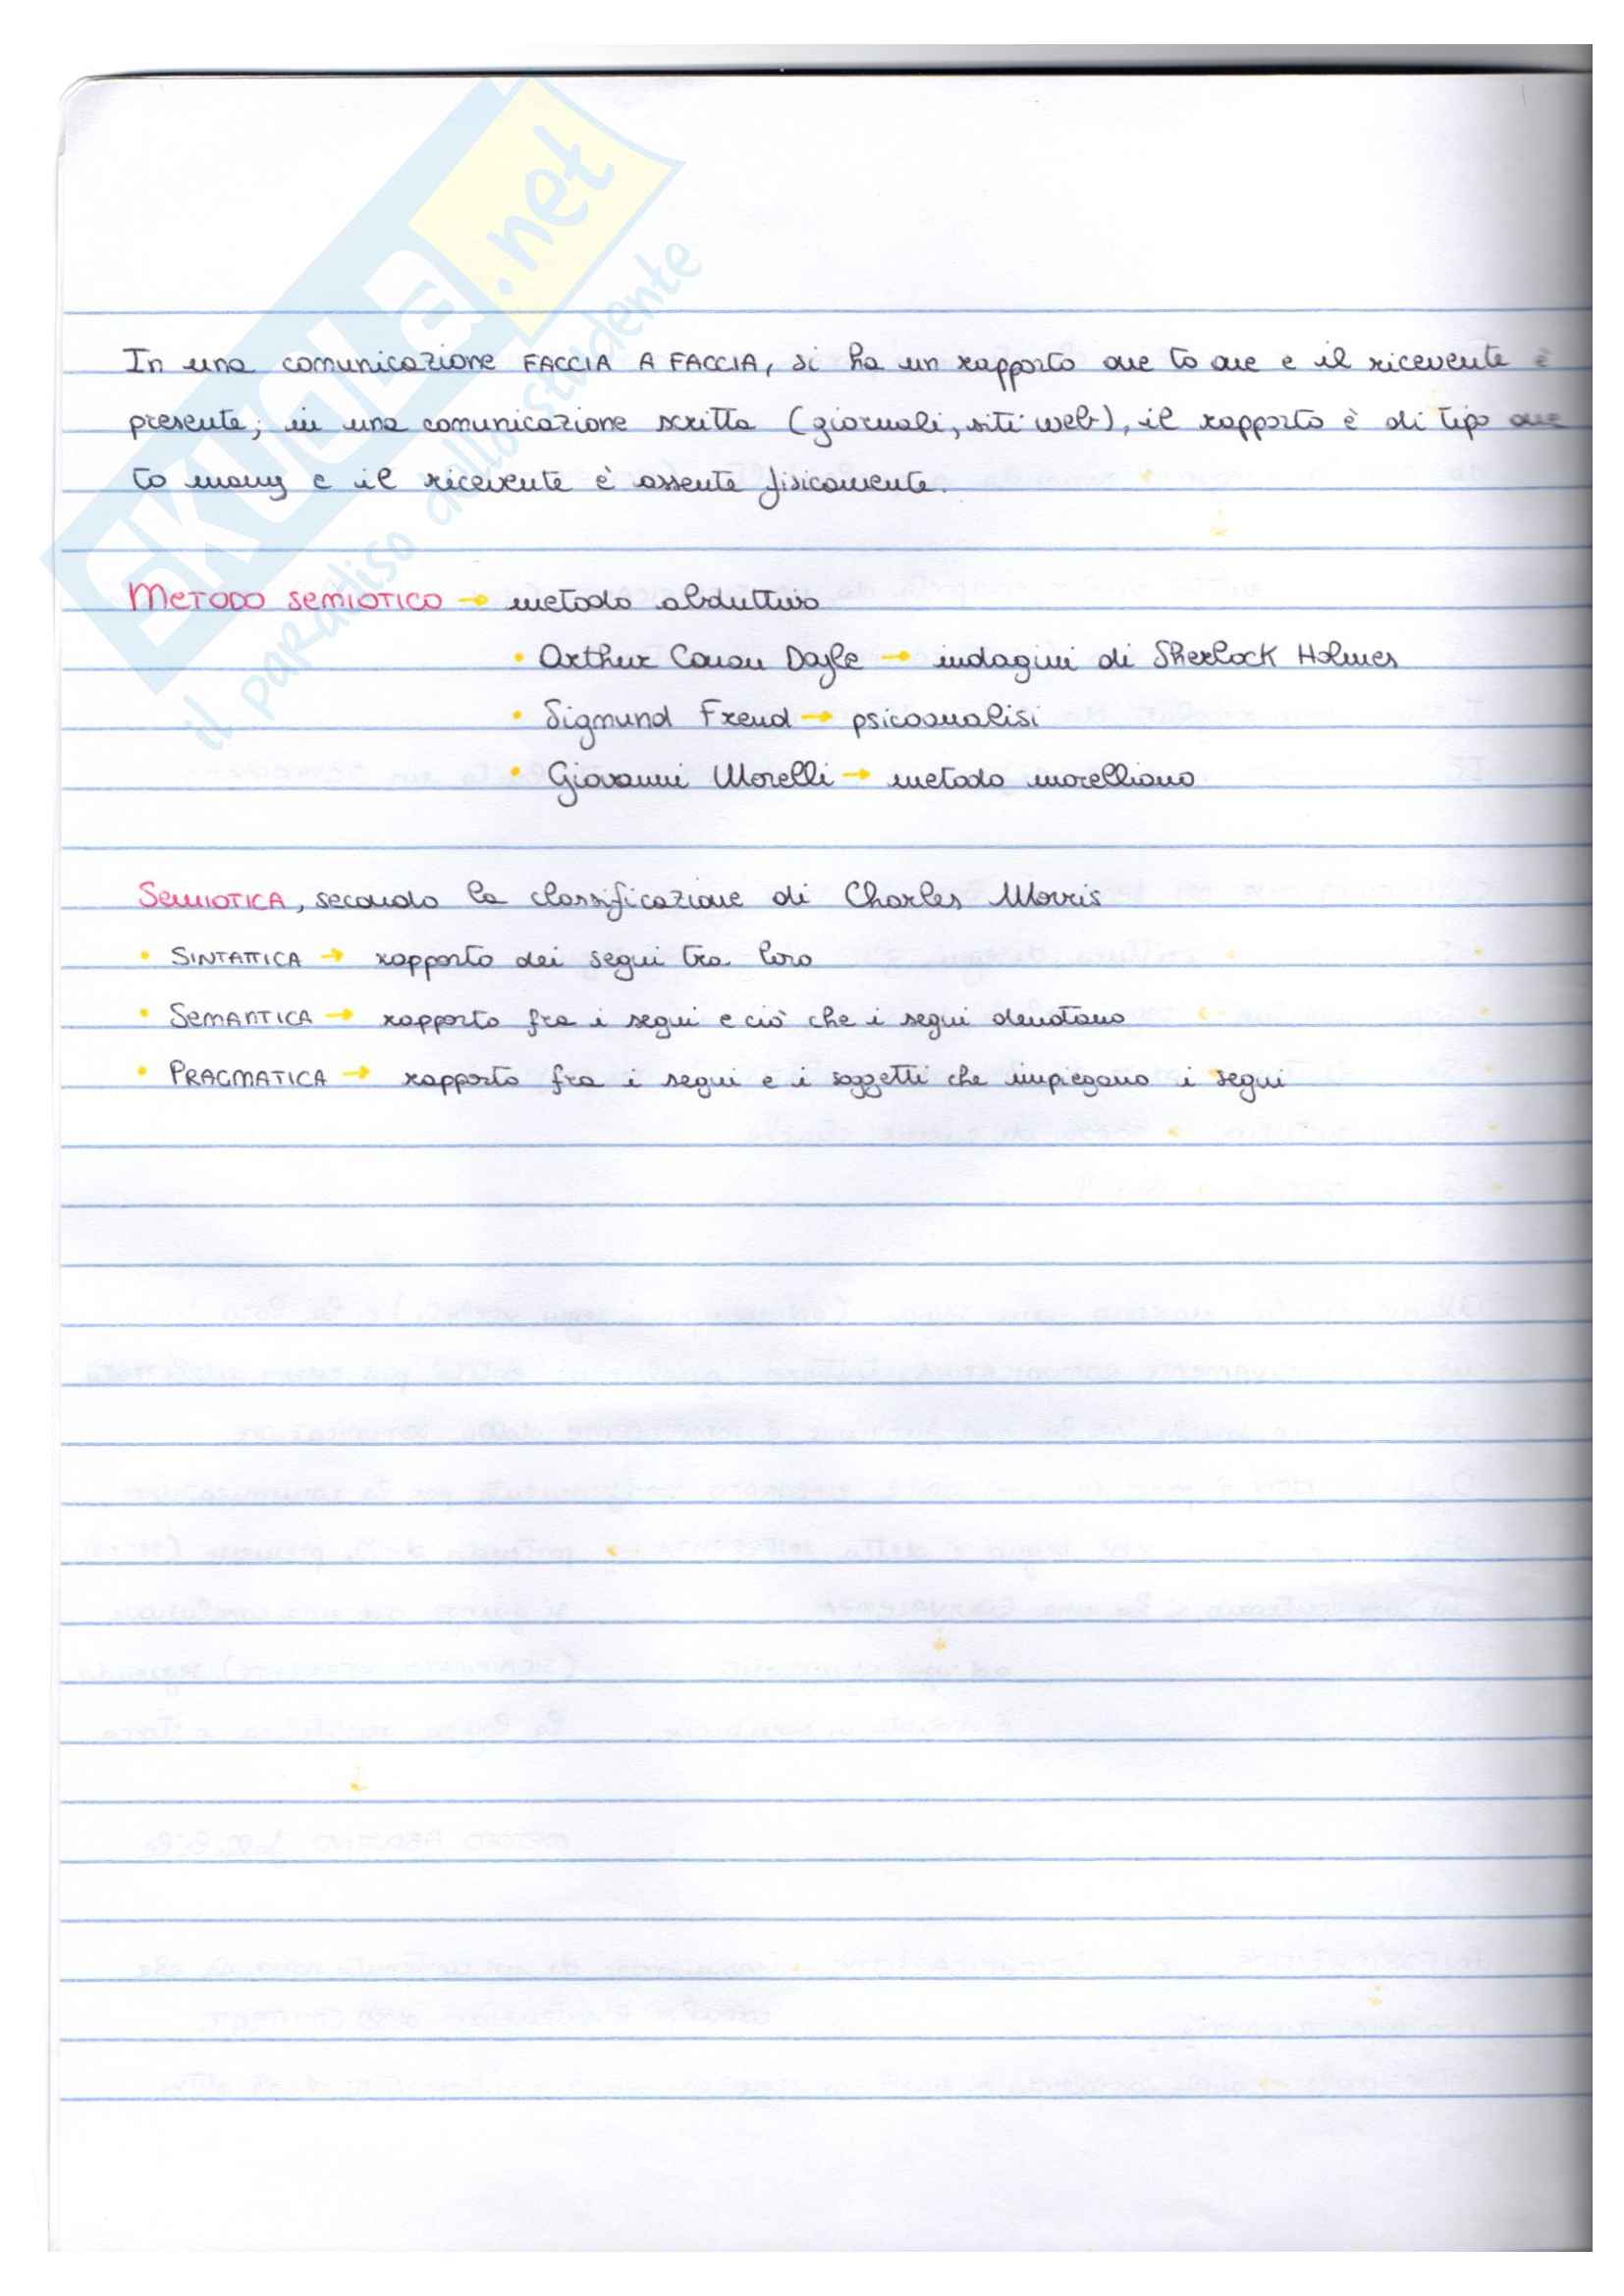 SKUOLA.net
il paradiso dello studente
In una comunicazione FACCIA A FACCIA, si ha un rapporto one to one e il ricevente è
presente; in una comunicazione scritta (giornali, siti web), il rapporto è di tipo one
to many e il ricevente è assente fisicamente.
METODO SEMIOTICO → metodo abduttivo
• Arthur Conan Doyle → indagini di Sherlock Holmes
• Sigmund Freud → psicoanalisi
• Giovanni Morelli → metodo morelliano
SEMIOTICA, secondo la classificazione di Charles Morris
• SINTATTICA → rapporto dei segni tra loro
• SEMANTICA → rapporto fra i segni e ciò che i segni denotano
• PRAGMATICA → rapporto fra i segni e i soggetti che impiegano i segni